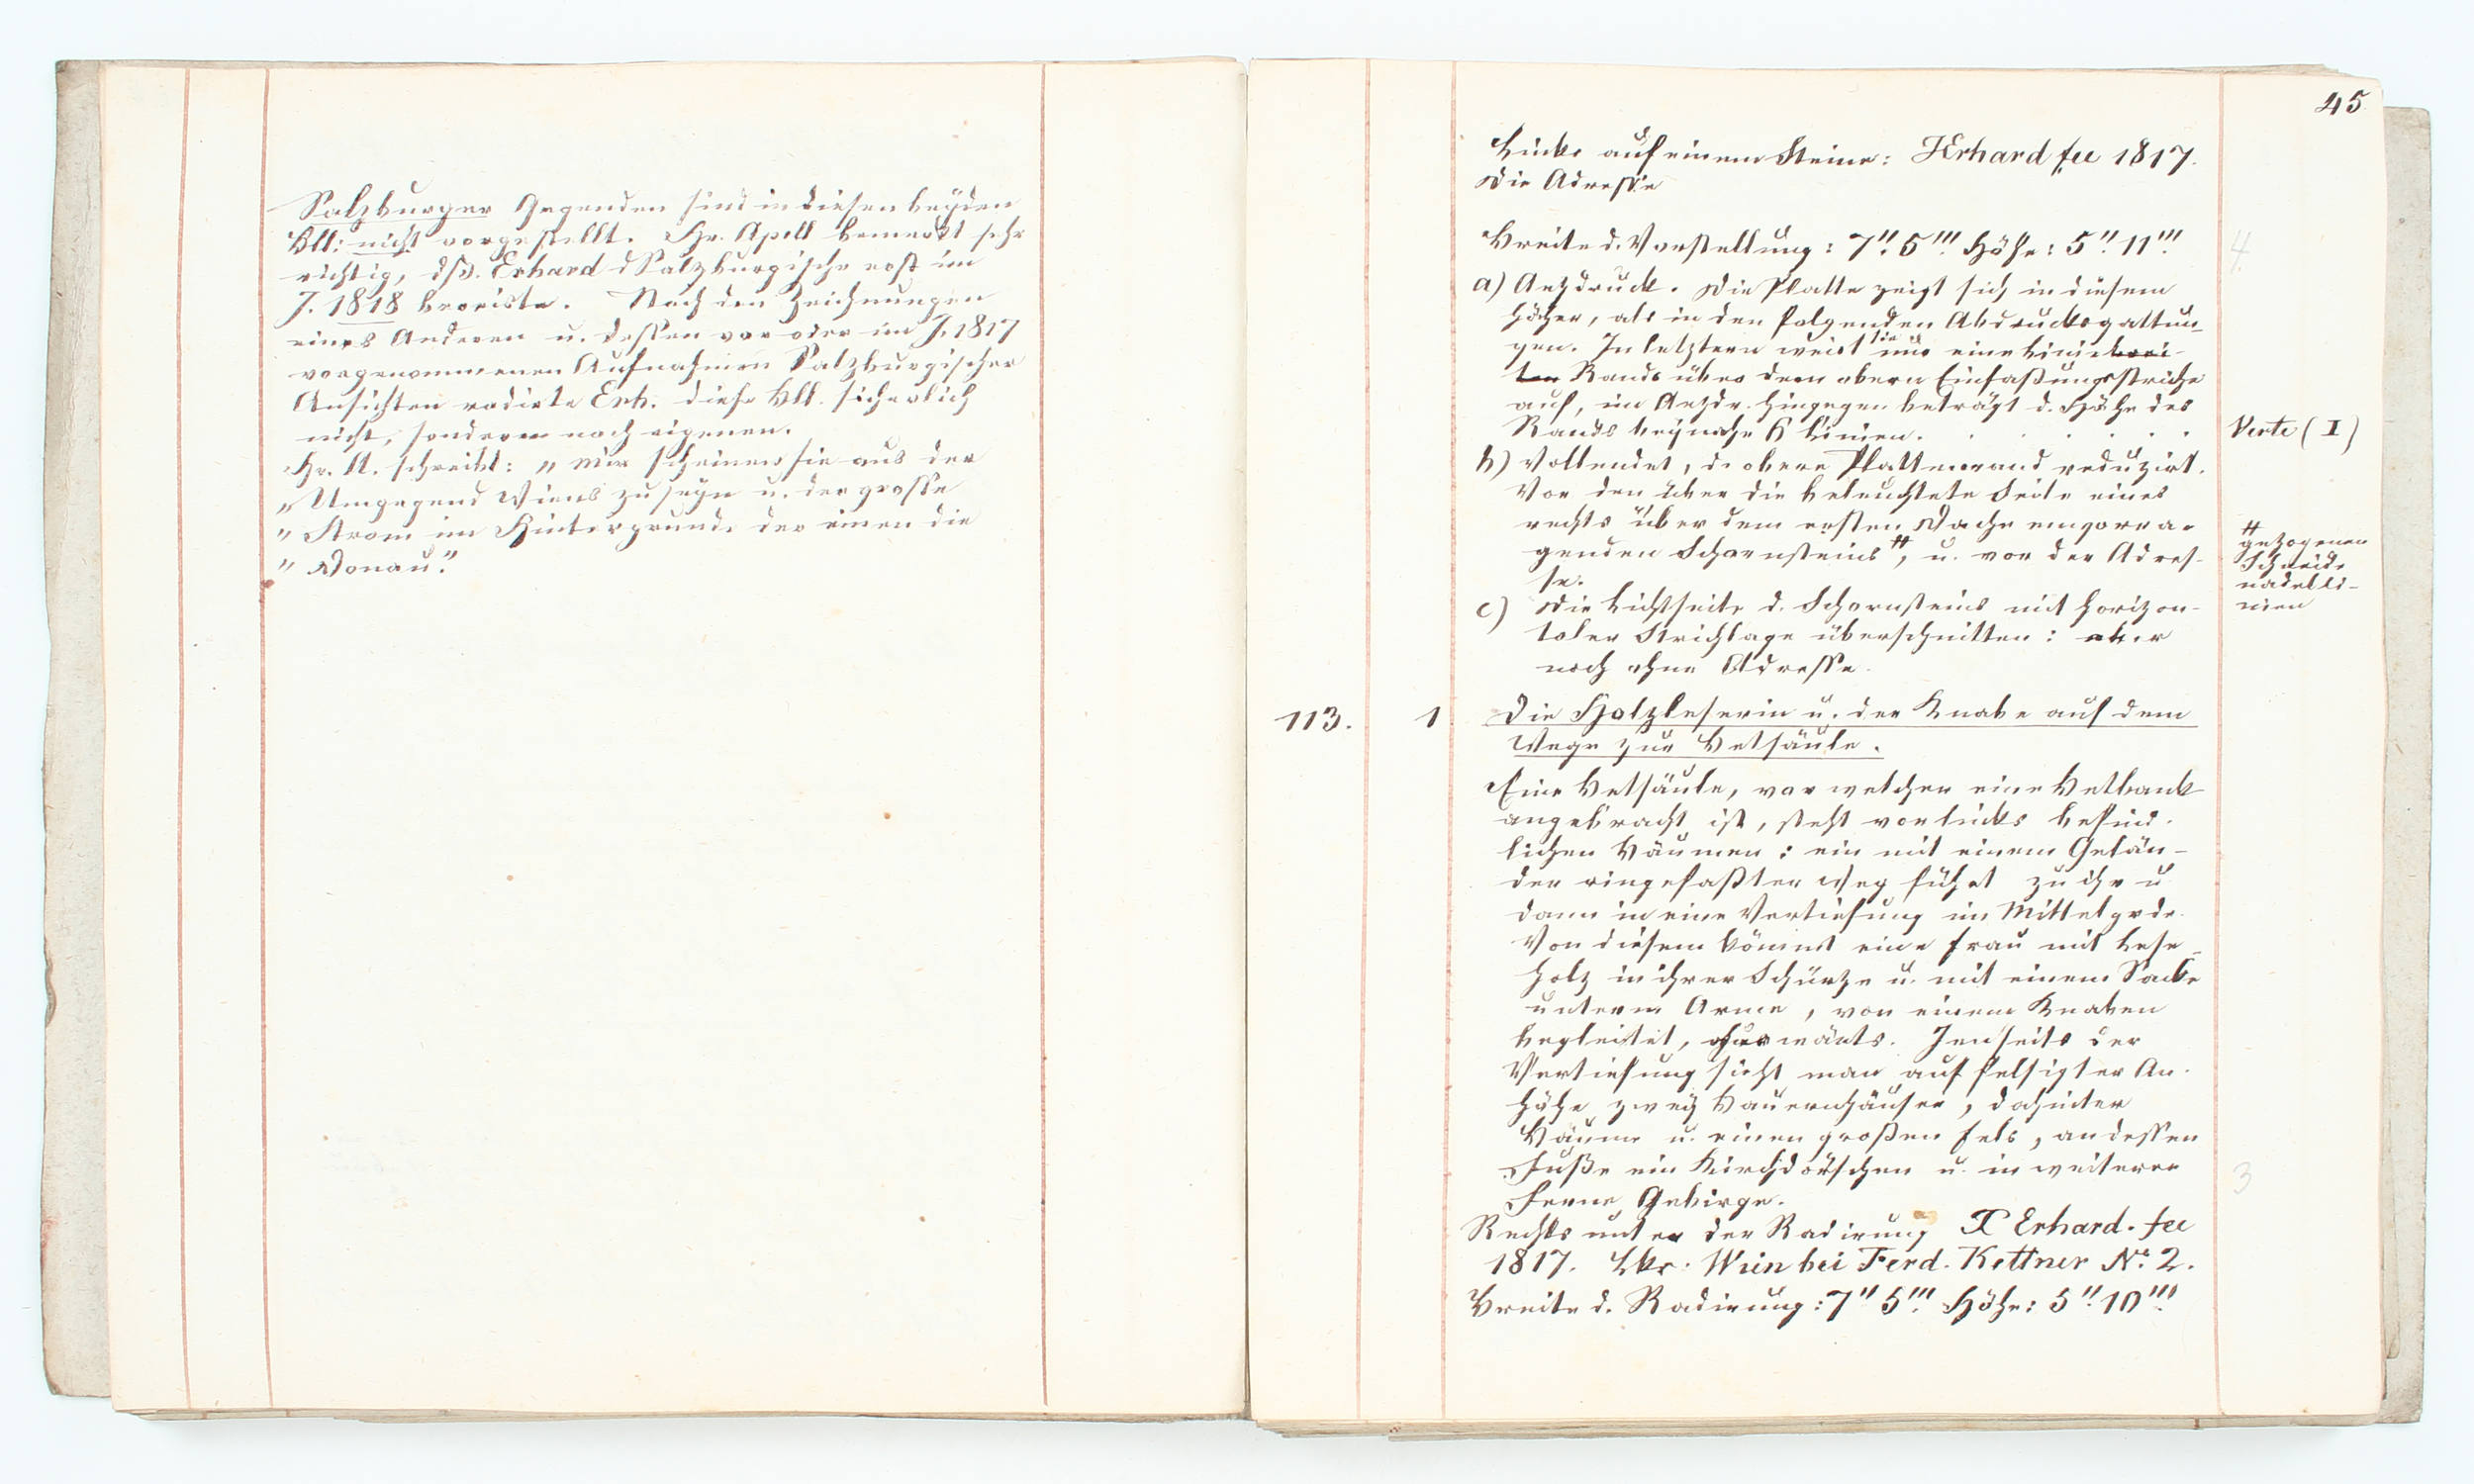 Salzburger Gegenden sind in diesen beyden
Bll: nicht vorgestellt. Hr. Apell bemerkt sehr
richtig, dß. Erhard d Salzburgische erst im
J. 1818 bereiste. Nach den Zeichnungen
eines Anderen u. dessen vor oder im J. 1817
vorgenommenen Aufnahmen Salzburgischer
Ansichten radirte Erh. diese Bll. sicherlich
nicht, sondern nach eigenen.
Hr. A. schreibt: „ Mir scheinen sie aus der
„ Umgegend Wiens zu seyn u. der grosse
„ Strom im Hintergrunde der einen die
„ Donau."
45
Links auf einem Steine: JErhard fec 1817.
Die Adresse
Breite d. Vorstellung: 7" 5"' Höhe: 5" 11"'
4.
a) Aezdruck. Die Platte zeigt sich in diesem
höher, als in den folgenden Abdrucksgattun-
gen. In letztern weist sie nur eine Linie brei-
ten Rands über dem obern Einfaßungsstriche
auf, im Aezdr. hingegen beträgt d. Höhe des
Rands beynahe 6 Linien. . . . . . Verte (I)
b) Vollendet, d. obere Plattenrand reduzirt.
Vor den über die beleuchtete Seite eines
rechts über dem ersten Dache emporra-
genden Schornsteins #, u. vor der Adres-
se.
# gezogenen
Schneide
nadelli-
nien
c) Die Lichtseite d. Schornsteins mit horizon-
taler Strichlage überschnitten: aber
noch ohne Adresse.
113. 1 Die Holzleserin u. der Knabe auf dem
Wege zur Betsäule.
Eine Betsäule, vor welcher eine Betbank
angebracht ist, steht vor links befind-
lichen Bäumen: ein mit einem Gelän-
der eingefaßter Weg führt zu ihr u
dann in eine Vertiefung im Mittelgrde.
Von diesem kömmt eine Frau mit Lese-
holz in ihrer Schürze u. mit einem Sacke
unterm Arme, von einem Knaben
begleitet, herwärts. Jenseits der
Vertiefung sieht man auf felsigter An-
höhe zwey Bauernhäuser, dahinter
Bäume u. einen großen Fels, an dessen
Fuße ein Kirchdörfchen u. in weiterer
Ferne Gebirge.
3
Rechts unter der Radirung JC Erhard. fec
1817. Lks. Wien bei Ferd. Kettner No. 2.
Breite d. Radirung: 7" 5"' Höhe: 5" 10"'